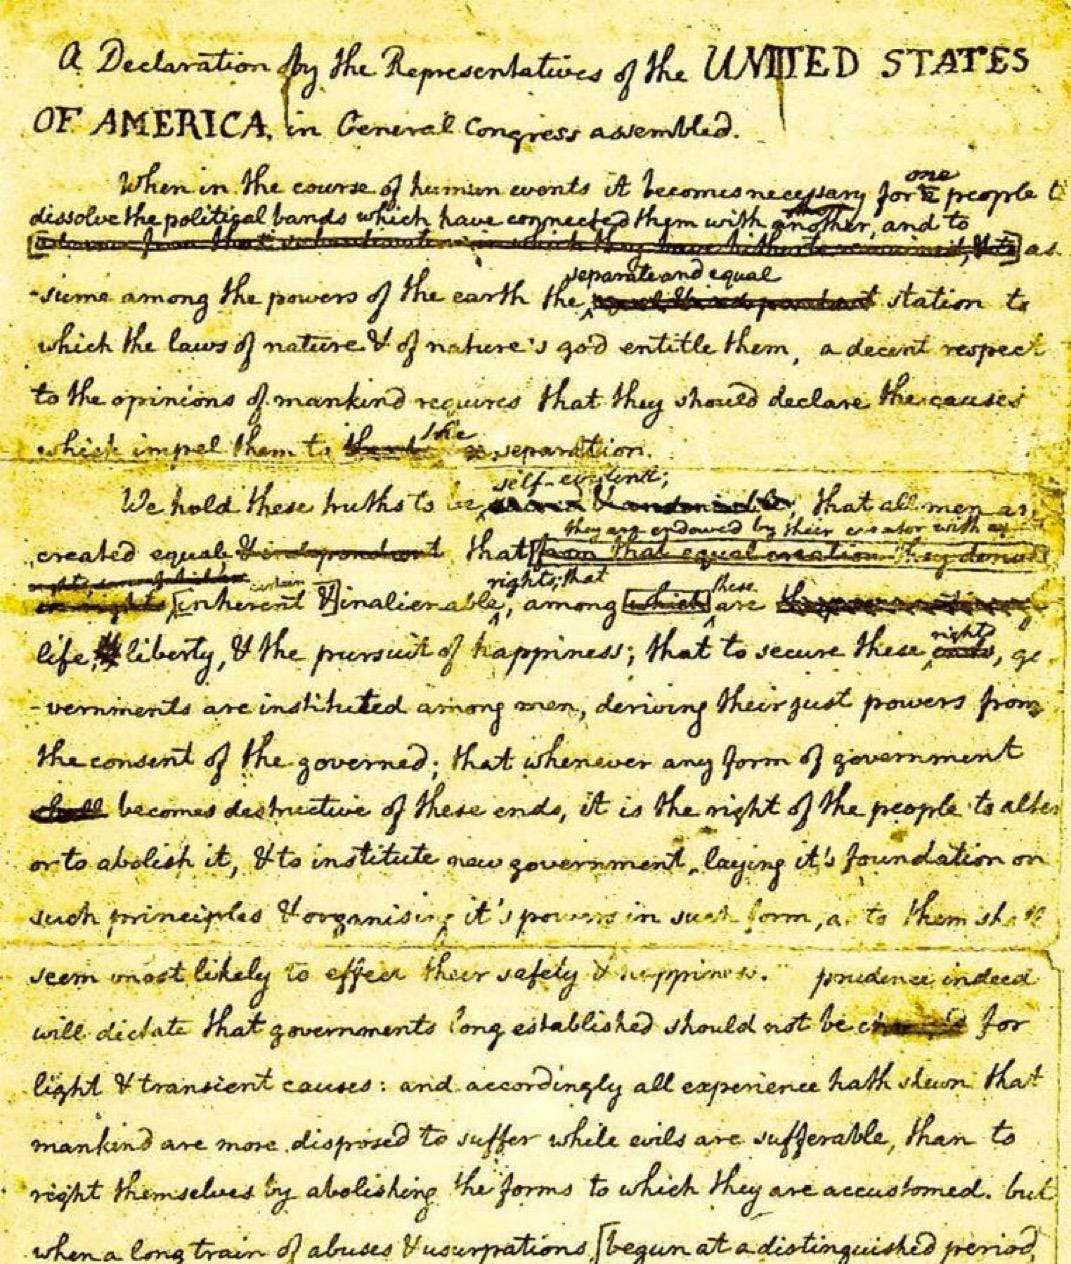 A Declaration by the Representatives of the UNITED STATES
OF AMERICA, in General Congress assembled.
one
When in the course of human events it becomes necessary for a people t
dissolve the political bands which have connected them with another, and to
as
separate and equal
-sume among the powers of the earth the station to
which the laws of nature & of nature's god entitle them, a decent respect
to the opinions of mankind requires that they should declare the causes
the
which impel them to separation.
self-evident;
We hold these truths to be that all men ar
they are endowed by their creator with
created equal & independant that [from that equal creation they derive
certain rights; that these
in rights [inherent &] inalienable, among [which] are
rights
life & liberty, & the pursuit of happiness; that to secure these ends, go
-vernments are instituted among men, deriving their just powers from
the consent of the governed; that whenever any form of government
shall becomes destructive of these ends, it is the right of the people to alter
or to abolish it, & to institute new government, laying it's foundation on
such principles & organising it's powers in such form, as to them shall
seem most likely to effect their safety & happiness. prudence indeed
will dictate that governments long established should not be for
light & transient causes: and accordingly all experience hath shewn that
mankind are more disposed to suffer while evils are sufferable, than to
right themselves by abolishing the forms to which they are accustomed. but
when a long train of abuses & usurpations, [begun at a distinguished period,